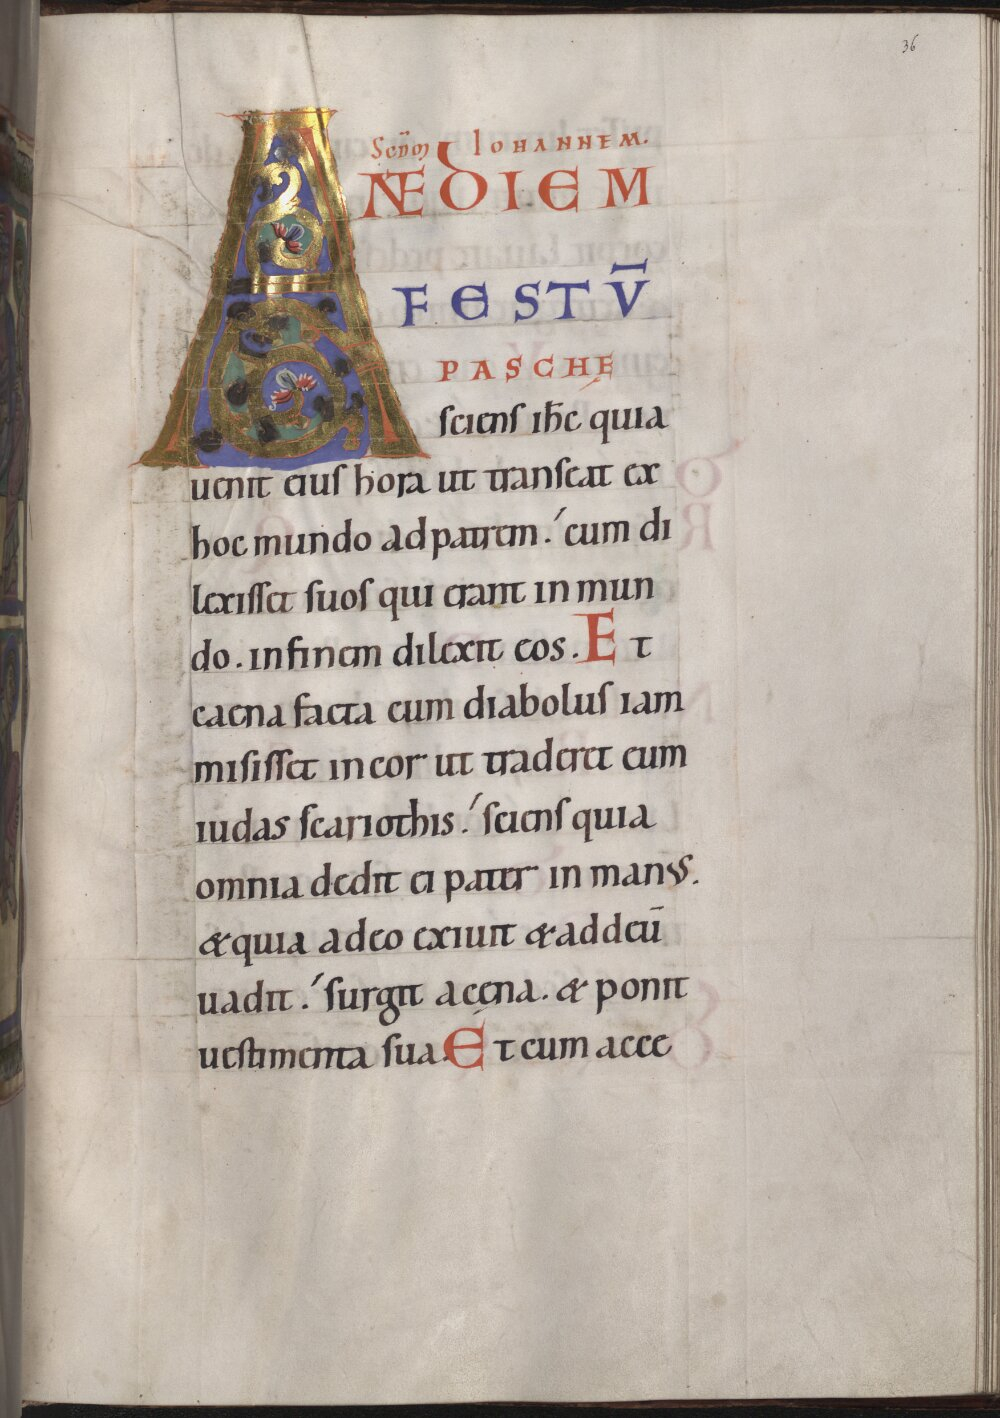 36
Scdm Iohannem.
ANTE DIEM
FESTŪ
PASCHE
sciens ih̄c quia
uenit eius hora ut transeat ex
hoc mundo ad patrem. cum di
lexisset suos qui erant in mun
do. in finem dilexit eos. Et
caena facta cum diabolus iam
misisset in cor ut traderet eum
iudas scariothis. sciens quia
omnia dedit ei pater in manus.
& quia a deo exiuit & ad deū
uadit. surgit a cena. & ponit
uestimenta sua. Et cum acce